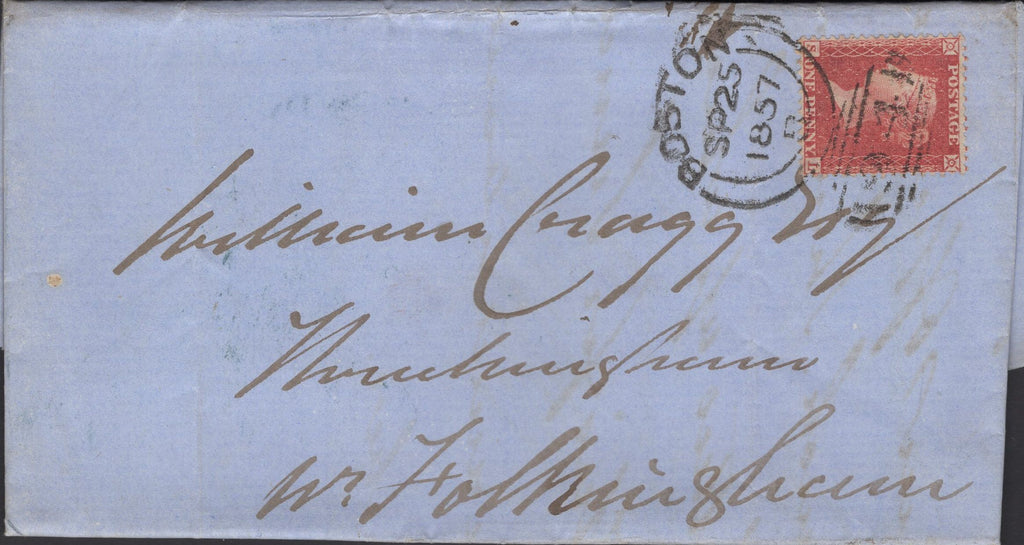 BOSTON
SP 25
1857
B
POSTAGE
ONE PENNY
S L
William Cragg Esq
Threckingham
Nr Folkingham